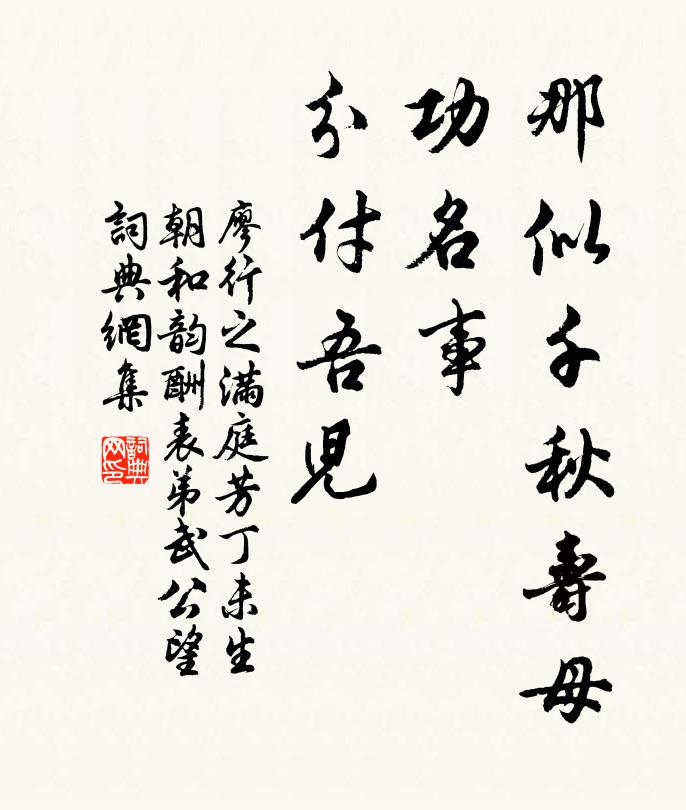 那似千秋壽母
功名事
分付吾兒
廖行之滿庭芳丁未生
朝和韵酬表弟武公望
詞典網集
詞典
网印